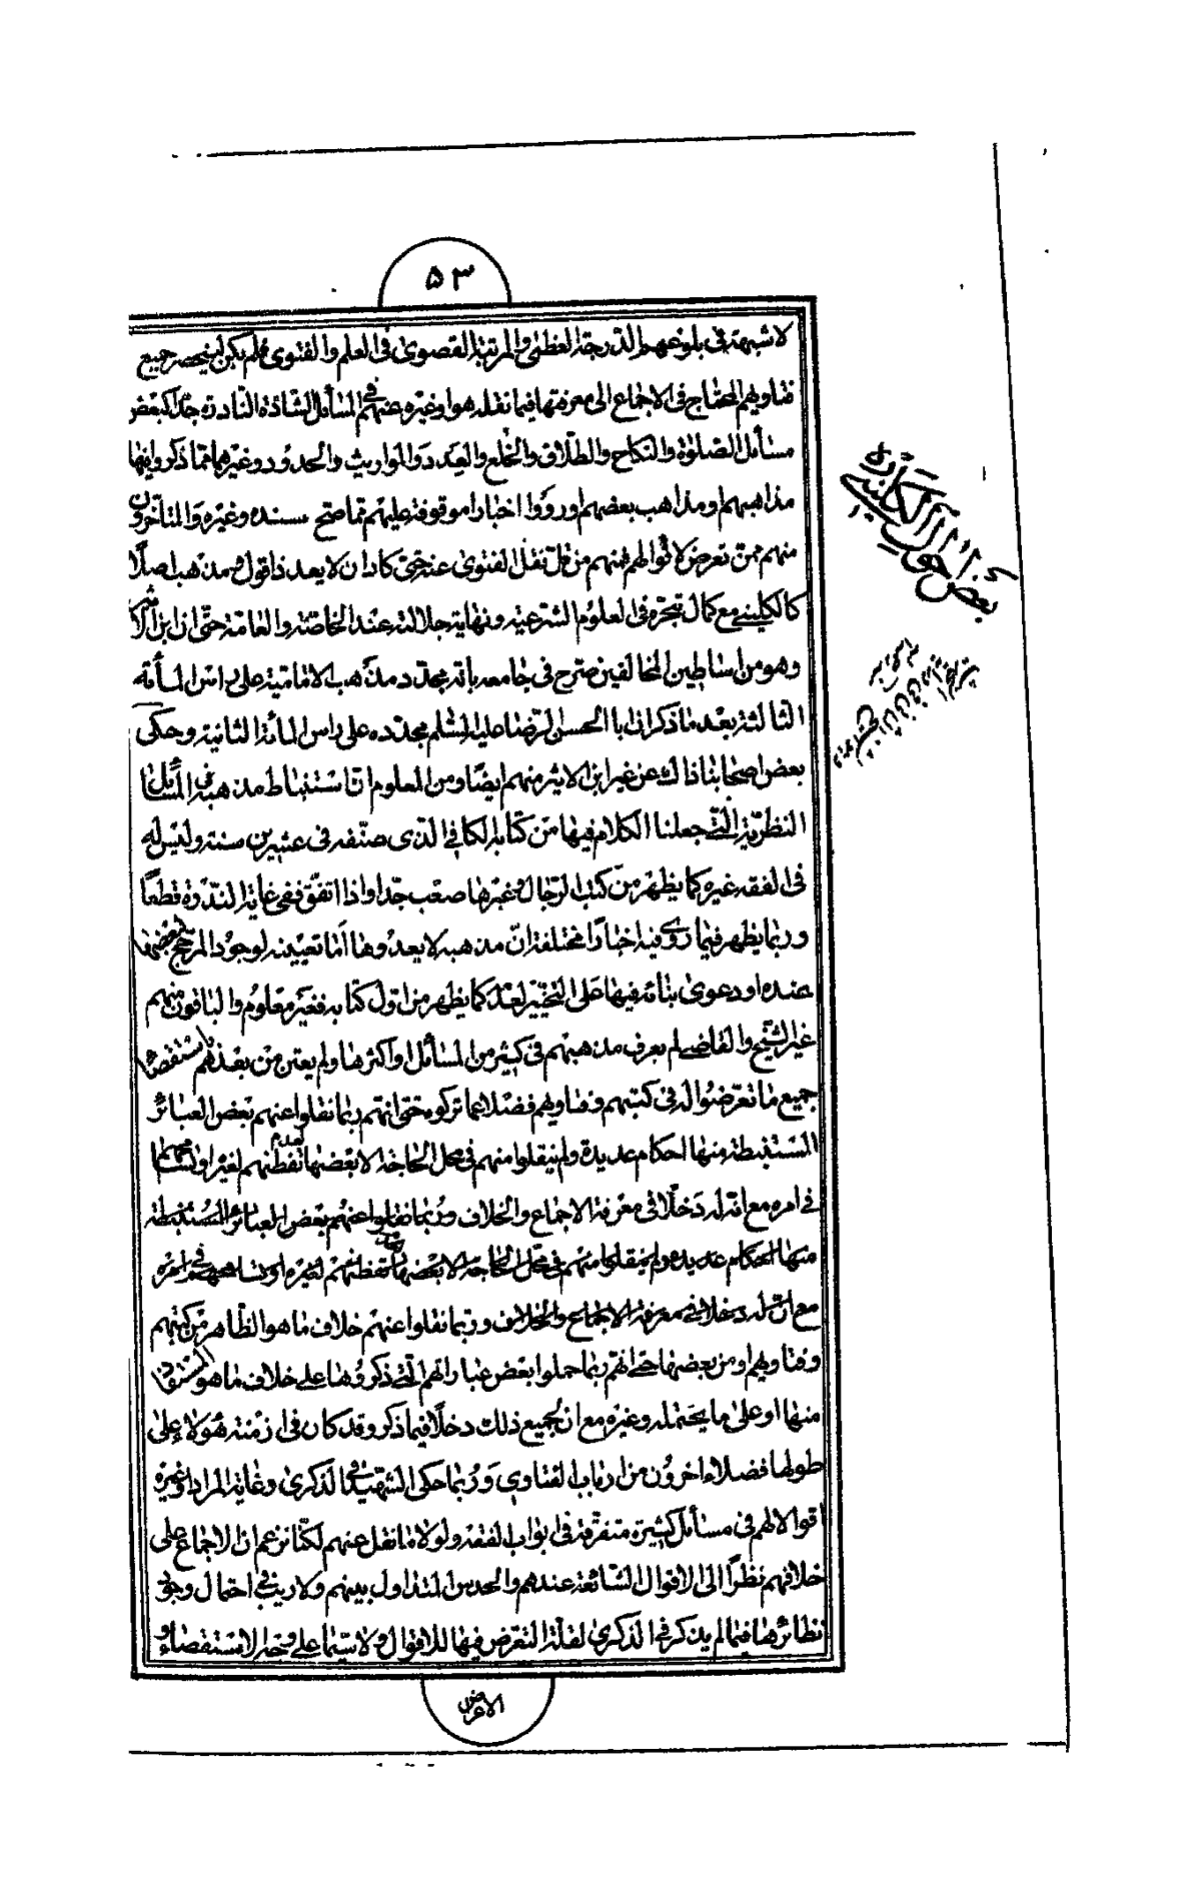 ٥٣
لا شبهة في بلوغهم الدرجة العظمى والمرتبة القصوى في العلم والفتوى فلم يكن ليتحصر جميع
فتاويهم المحتاج في الاجماع الى معرفتها فيما نقله هو او غيره عنهم في المسائل الشاذة النادرة جدا كبعض
مسائل الصلوة والنكاح والطلاق والخلع والعدد والمواريث والحدود وغيرها مما ذكروا فيها
مذاهبهم ومذاهب بعضهم ورووا اخبارا موقوفة عليهم مما صح بسنده وغيره والمتأخرون
منهم ممن تعرض لاقوالهم فمنهم من قل نقل الفتوى عنه حتى كاد ان لا يعد ذا قول ومذهب اصلا
كالكليني مع كمال تبحره في العلوم الشرعية ونهاية جلالته عند الخاصة والعامة حتى ان ابن الاثير
وهو من اساطين المخالفين صرح في جامعه بانه مجدد مذهب الامامية على راس المأته
الثالثة بعد ما ذكر ان ابا الحسن الرضا عليه السلم مجدده على راس المأة الثانية وحكى
بعض اصحابنا ذلك عن غير ابن الاثير منهم ايضا ومن المعلوم ان استنباط مذهبه في المسائل
النظرية التي جعلنا الكلام فيها من كتابه الكافي الذي صنفه في عشرين سنة وليس له
في الفقه غيره كما يظهر من كتب الرجال وغيرها صعب جدا واذا اتفق ففي غاية الندرة قطعا
وربما يظهر فيما روى فيه اخبارا مختلفة ان مذهبه لا يعدوها اما تعيينه لوجود المرجح لبعضها
عنده او دعوى بنائه فيها على التخيير لفقده كما يظهر من اول كتابه فغير معلوم والباقون منهم
غير الشيخ والفاضل لم يعرف مذهبهم في كثير من المسائل او اكثرها ولم يعتن من بعدهم باستقصاء
جميع ما تعرضوا له في كتبهم وفتاويهم فضلا عما تركوه حتى انهم ربما نقلوا عنهم بعض العبائر
المستنبطة منها احكام عديدة ولم ينقلوا منهم في محل الحاجة الا بعضها لعدم تفطنهم لغيره او لتسامحهم
في امره مع ان له دخلا في معرفة الاجماع والخلاف وربما نقلوا عنهم بعض العبائر المستنبطة
منها احكام عديدة ولم ينقلوا منهم في محل الحاجة الا بعضها لعدم تفطنهم لغيره او لتسامحهم في امره
مع ان له دخلا في معرفة الاجماع والخلاف وربما نقلوا عنهم خلاف ما هو الظاهر من كتبهم
وفتاويهم او من بعضها حتى انهم ربما حملوا بعض عباراتهم التي ذكروها على خلاف ما هو المستفاد
منها او على ما يحتمله وغيره مع ان لجميع ذلك دخلا فيما ذكر وقد كان في ازمنة هؤلاء على
طولها فضلاء اخرون من ارباب الفتاوى وربما حكى الشهيد في الذكرى وغاية المراد وغيره
اقوالا لهم في مسائل كثيرة متفرقة في ابواب الفقه ولولا ما نقل عنهم لكنا نزعم ان الاجماع على
خلافهم نظرا الى الاقوال الشائعة عندهم والحدس المتداول بينهم ولا ريب في احتمال وجود
نظائرها فيما لم يذكر في الذكرى لقلة التعرض فيها للاقوال ولا سيما على وجه الاستقصاء و
بعض احوال الكليني